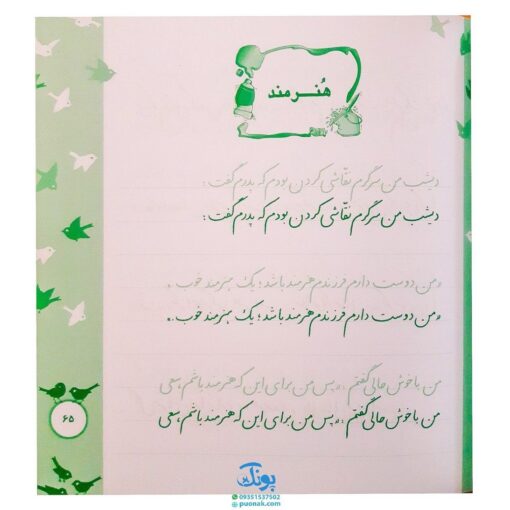 هُنرمند
دیشب من سرگرم نقّاشی کردن بودم که پدرم گفت :
دیشب من سرگرم نقّاشی کردن بودم که پدرم گفت :
«من دوست دارم فرزندم هنرمند باشد ؛ یک هنرمند خوب .»
«من دوست دارم فرزندم هنرمند باشد ؛ یک هنرمند خوب .»
من با خوش حالی گفتم : «پس من برای این که هنرمند باشم، سعی
من با خوش حالی گفتم : «پس من برای این که هنرمند باشم، سعی
۶۵
پونک
09351537502
puonak.com